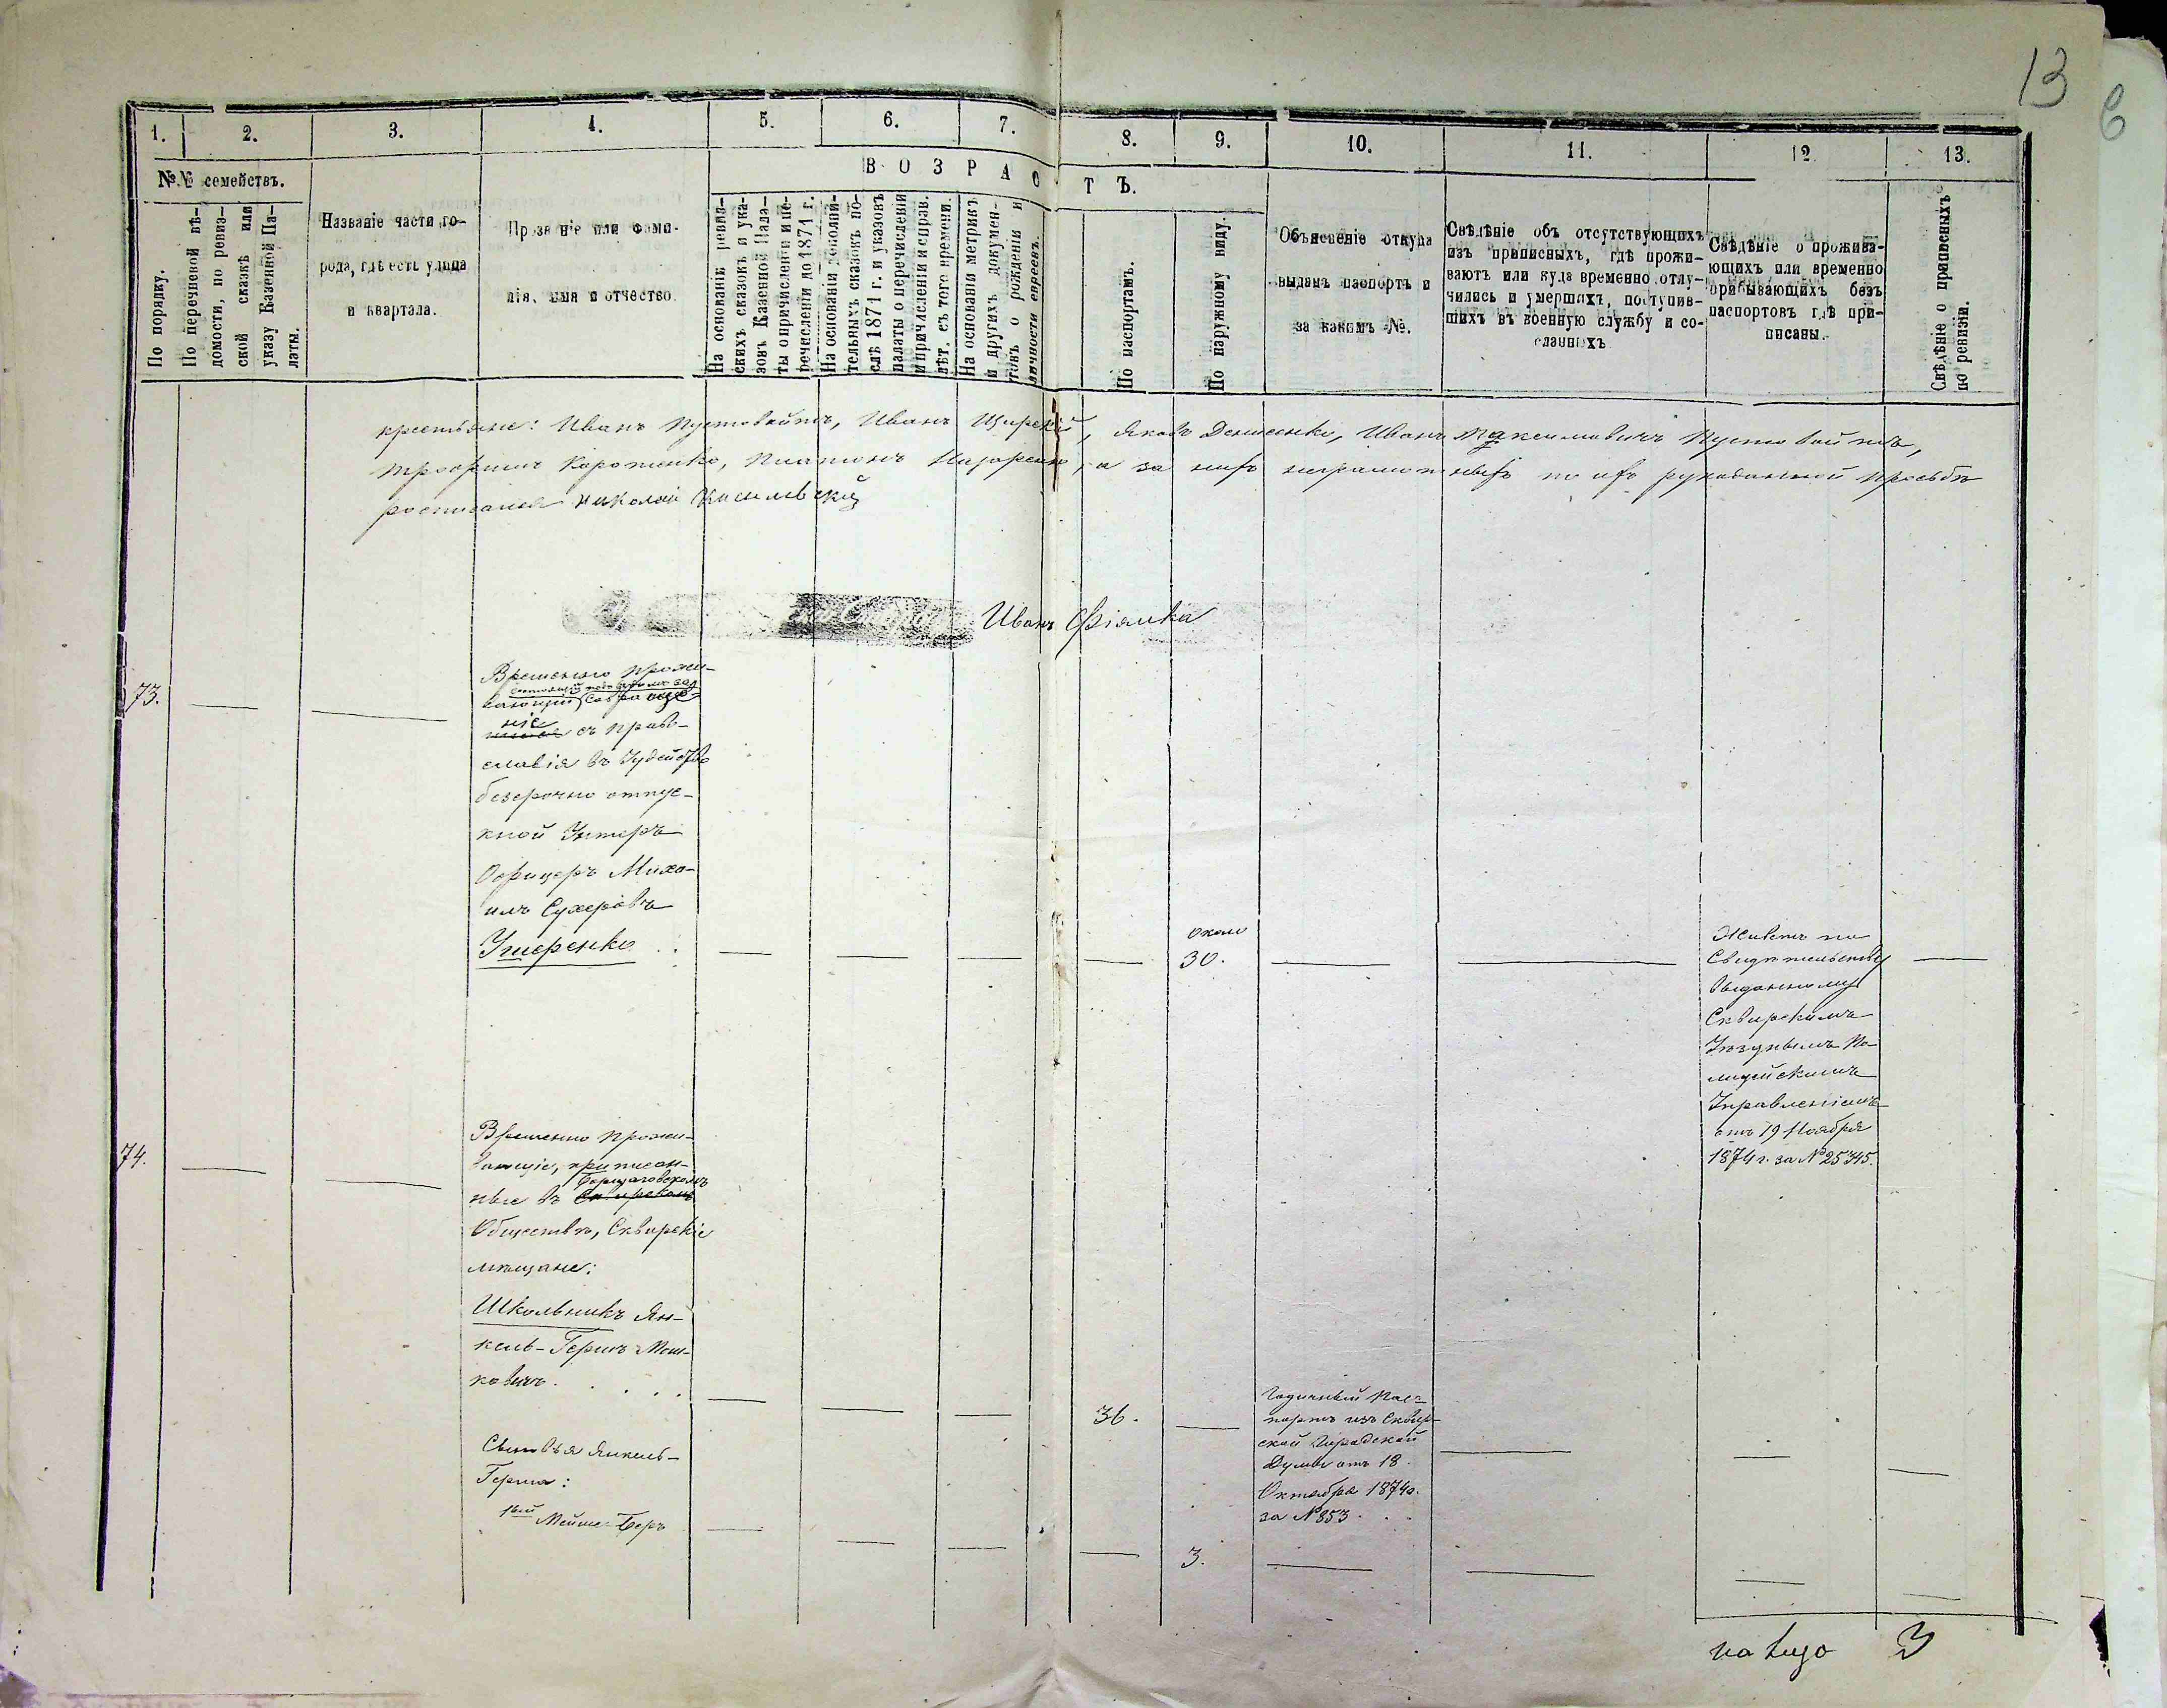 13
6
1. 2. 3. 4. 5. 6. 7. 8. 9. 10. 11. 12. 13.
В О З Р А С Т Ъ.
№№ семействъ.
По порядку.
По перечневой вѣ-
домости, по ревиз-
ской сказкѣ или
указу Казенной Па-
латы.
Названіе части го-
рода, гдѣ есть улица
и квартала.
Прозваніе или фами-
лія, имя и отчество.
На основаніи ревиз-
скихъ сказокъ и ука-
зовъ Казенной Пала-
ты о причисленіи и пе-
речисленіи до 1871 г.
На основаніи дополни-
тельныхъ сказокъ по-
слѣ 1871 г. и указовъ
палаты о перечисленіи
и причисленіи и справ.
лѣт. съ того времени.
На основаніи метрикъ
и другихъ докумен-
товъ о рожденіи и
личности евреевъ.
По паспортамъ.
По наружному виду.
Объясненіе откуда
выданъ паспортъ и
за какимъ №.
Свѣдѣніе объ отсутствующихъ
изъ приписныхъ, гдѣ прожи-
ваютъ или куда временно отлу-
чились и умершихъ, поступив-
шихъ въ военную службу и со-
сланныхъ
Свѣдѣніе о прожива-
ющихъ или временно
прибывающихъ безъ
паспортовъ гдѣ при-
писаны.
Свѣдѣніе о приписныхъ
по ревизіи.
крестьяне: Иванъ Пустовойтъ, Иванъ Щирскій, Яковъ Денисенко, Иванъ Максимовичъ Пустовойтъ,
Трофимъ Коротенко, Платонъ Назаренко, а за нихъ неграмотныхъ по ихъ рукоданной просьбѣ
росписался Николай Василевскій
Иванъ Фіялка
73.
Временно прожи-
состоящій подъ судомъ за
вающій совращеніе
съ право-
славія въ Іудейство
безсрочно отпус-
кной Унтеръ
Офицеръ Миха-
илъ Сухеровъ
Ушеренко
около
30.
Живетъ по
Свидѣтельству
выданному
Сквирскимъ
Уѣзднымъ По-
лицейскимъ
Управленіемъ
отъ 19 Ноября
1874 г. за № 25345.
74.
Временно прожи-
вающіе, приписан-
Борщаговскомъ
ные въ Сквирскомъ
Обществѣ, Сквирскіе
мѣщане:
Школьникъ Ян-
кель-Гершъ Мош-
ковичъ
36.
Годичный Пас-
портъ изъ Сквир-
ской Городской
Думы отъ 18
Октября 1874 г.
за № 853
Сыновья Янкель-
Герша:
1ый Мейше-Беръ
3.
на лицо 3